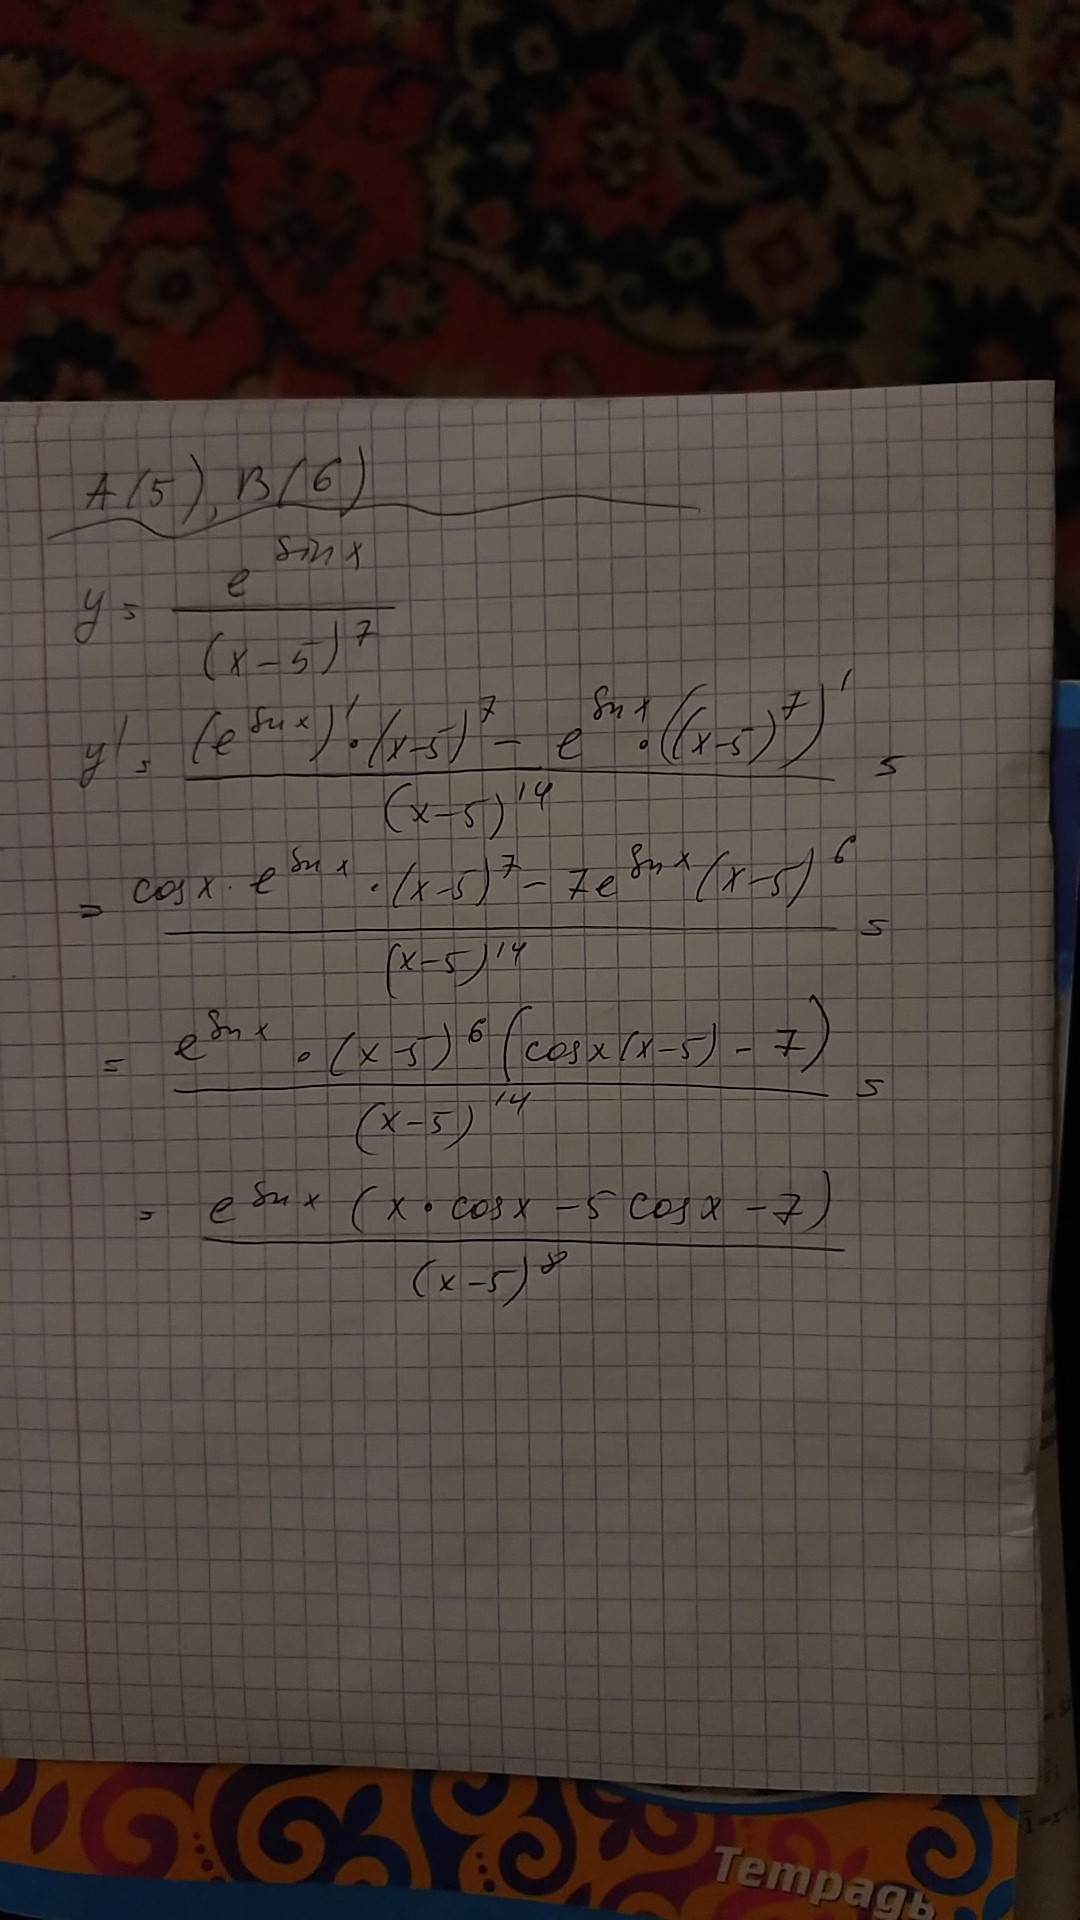 A(5), B(6)
y = e^{sin x} / (x-5)^7
y' = ((e^{sin x})' · (x-5)^7 - e^{sin x} · ((x-5)^7)') / (x-5)^{14} =
= (cos x · e^{sin x} · (x-5)^7 - 7e^{sin x} (x-5)^6) / (x-5)^{14} =
= (e^{sin x} · (x-5)^6 (cos x (x-5) - 7)) / (x-5)^{14} =
= (e^{sin x} (x · cos x - 5 cos x - 7)) / (x-5)^8
Тетрадь